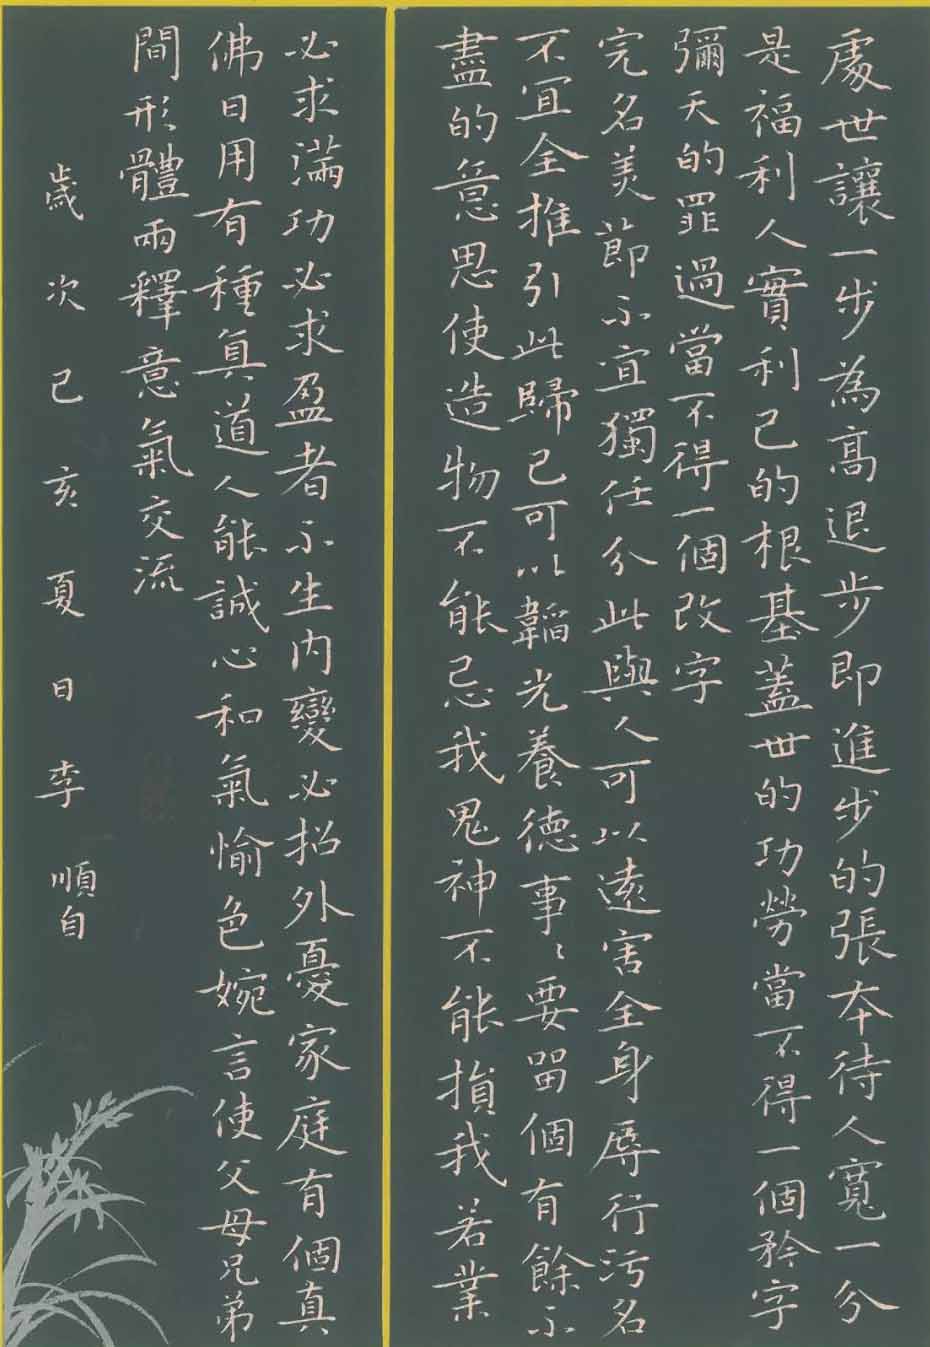 處世讓一步為高退步即進步的張本待人寬一分
是福利人實利己的根基蓋世的功勞當不得一個矜字
彌天的罪過當不得一個改字
完名美節不宜獨任分此與人可以遠害全身辱行污名
不宜全推引此歸己可以韜光養德事〻要留個有餘不
盡的意思使造物不能忌我鬼神不能損我若業
必求滿功必求盈者不生內變必招外憂家庭有個真
佛日用有種真道人能誠心和氣愉色婉言使父母兄弟
間形體兩釋意氣交流
歲次己亥夏日李順自